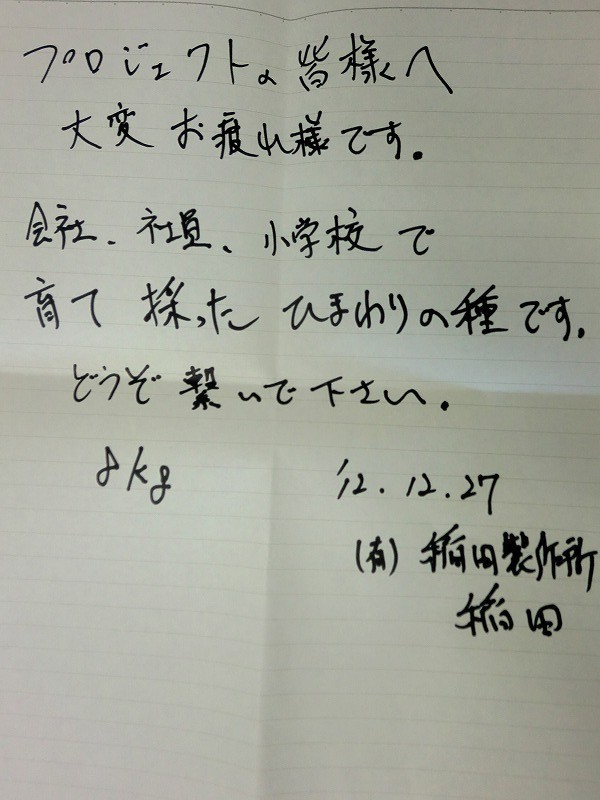 プロジェクトの皆様へ
大変お疲れ様です。
会社、社員、小学校で
育て採ったひまわりの種です。
どうぞ繋いで下さい。
8kg
'12.12.27
(有)稲田製作所
稲田